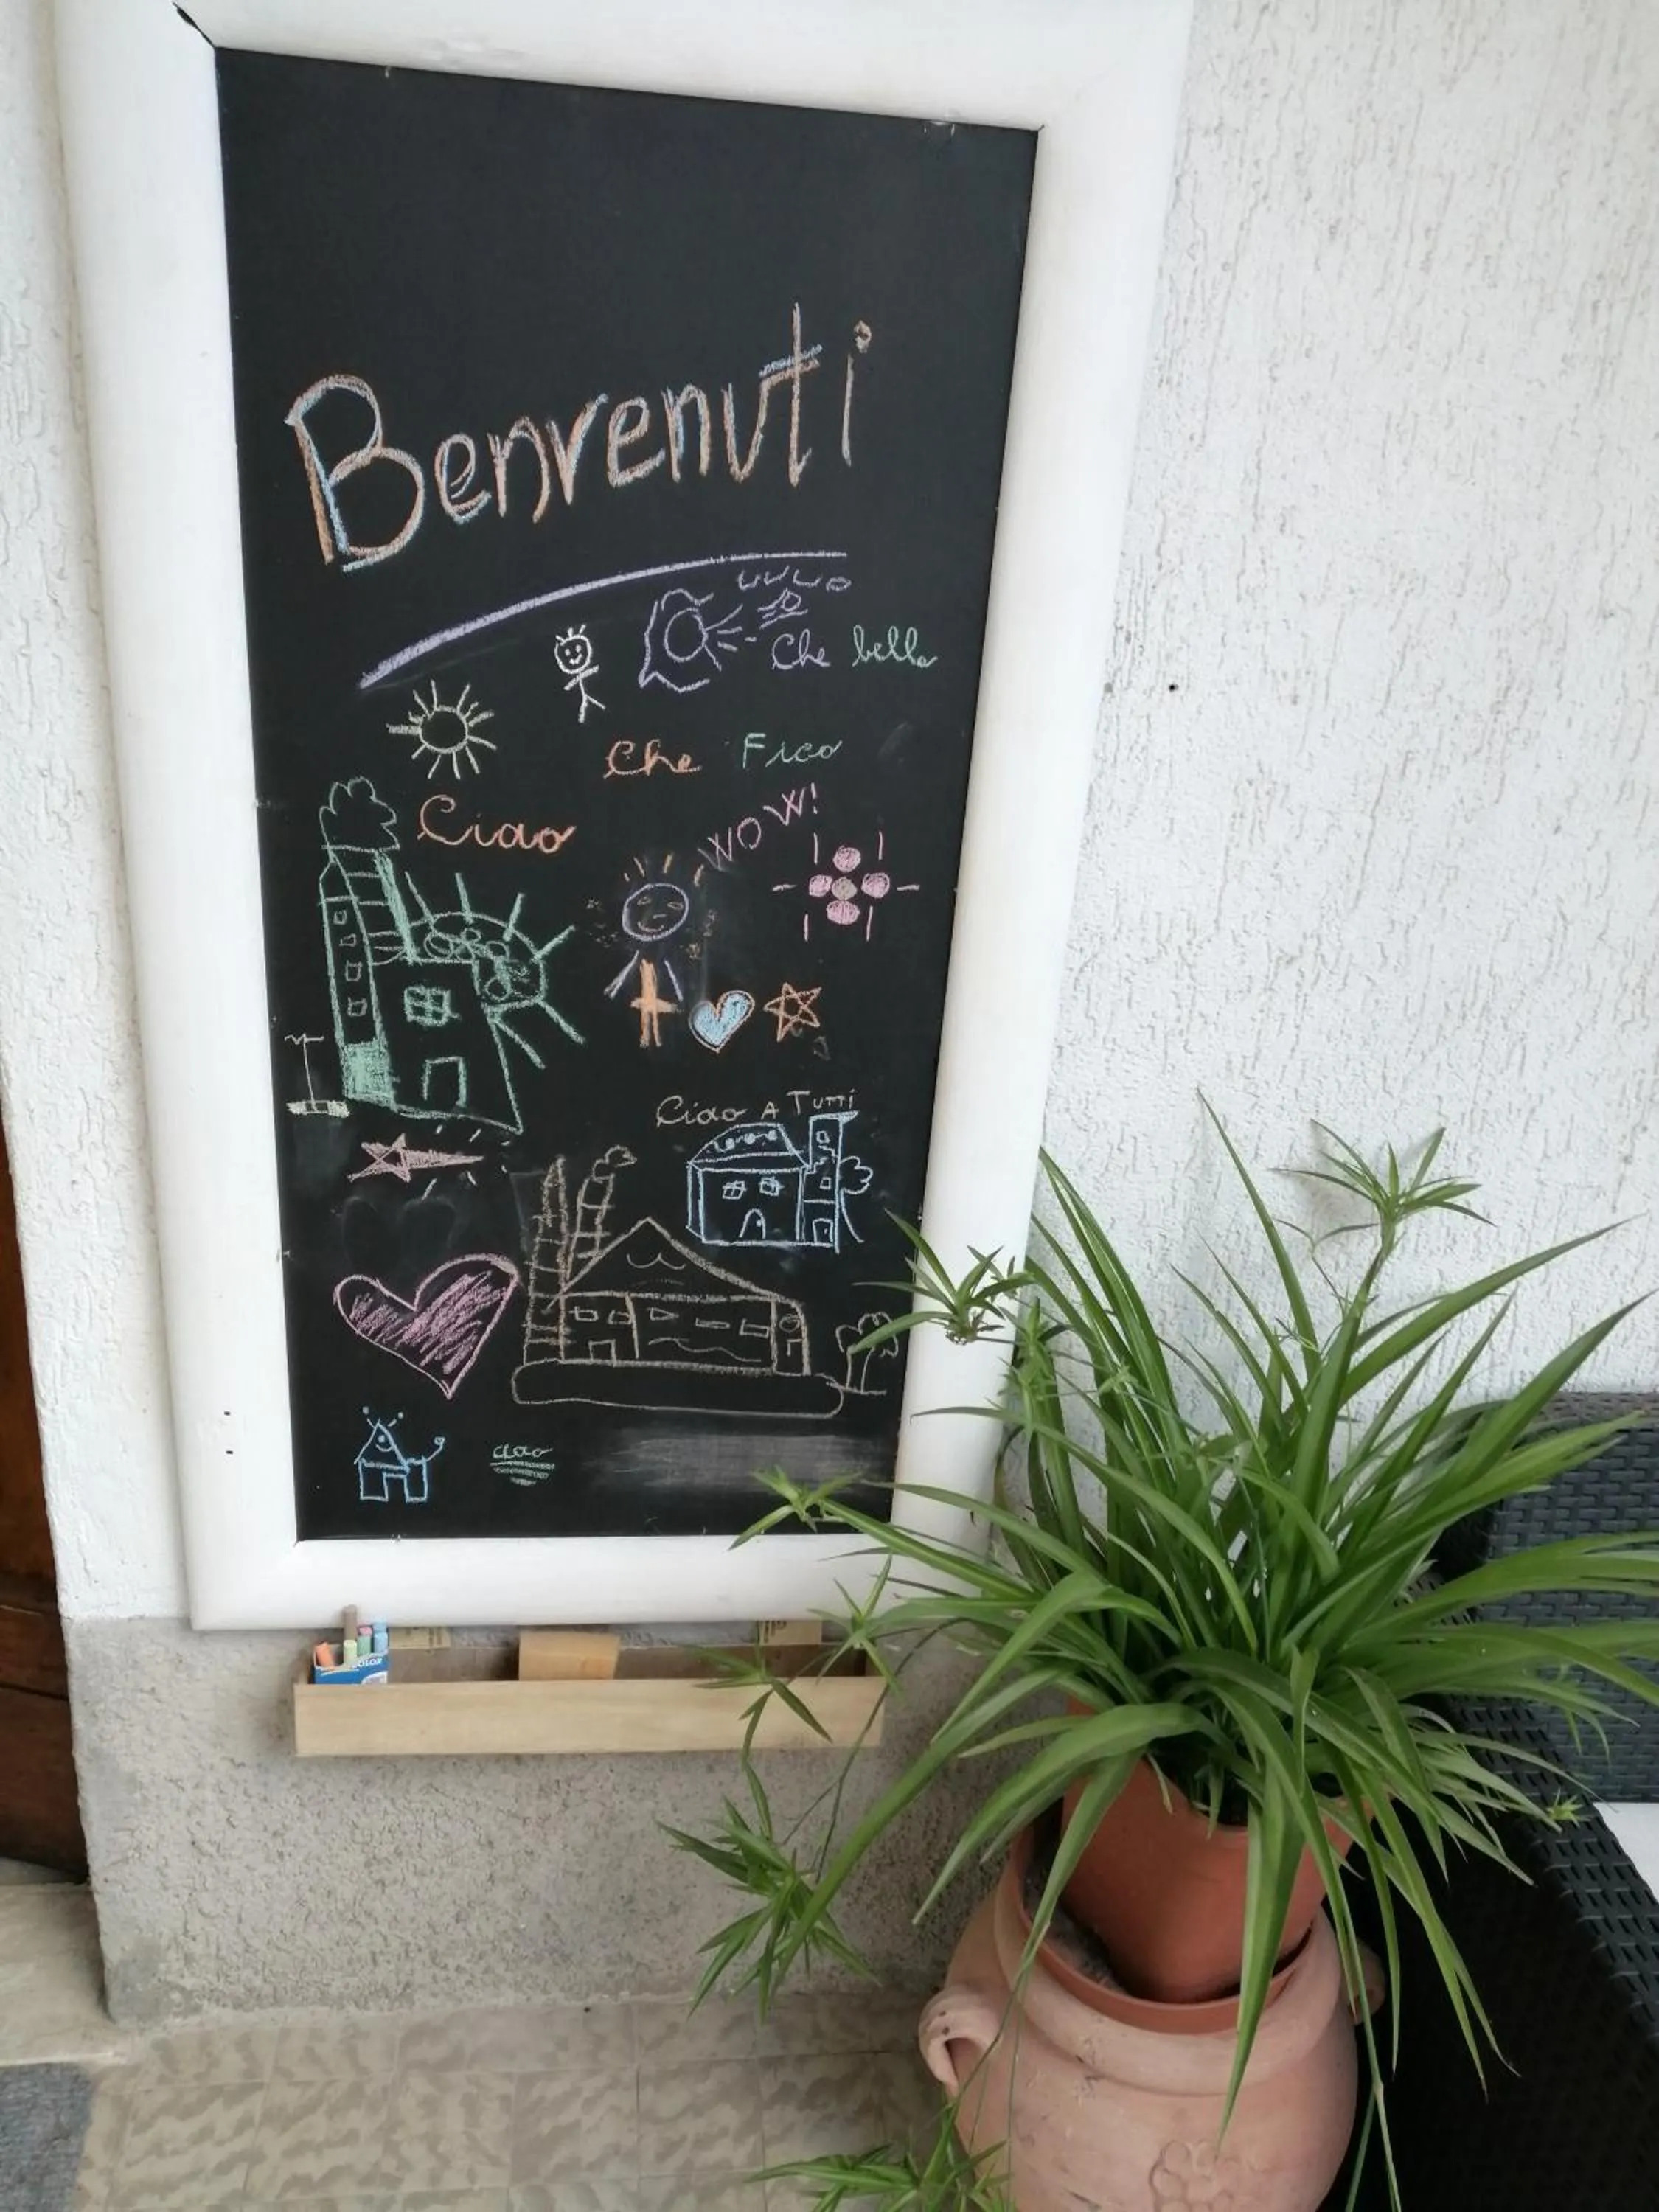 Benvenuti
Che bello
Che Fico
WOW!
Ciao
Ciao A TUTTI
ciao